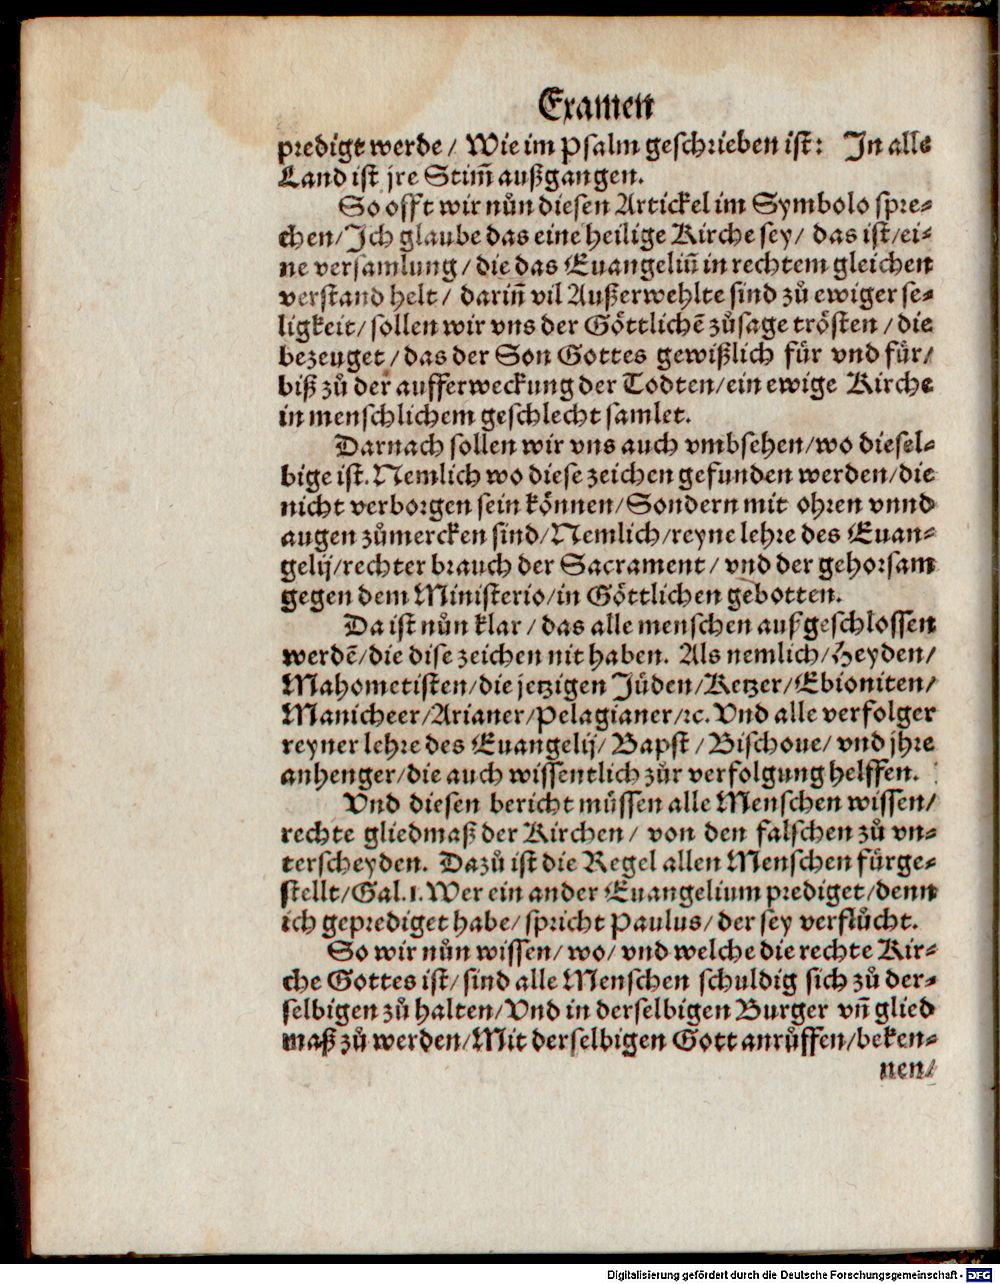 Examen
predigt werde / Wie im Psalm geschrieben ist: In alle
Land ist jre Stim̃ außgangen.
So offt wir nůn diesen Artickel im Symbolo spre-
chen / Ich glaube das eine heilige Kirche sey / das ist / ei-
ne versamlung / die das Euangeliũ in rechtem gleichen
verstand helt / dariñ vil Außerwehlte sind zů ewiger se-
ligkeit / sollen wir vns der Göttlichẽ zůsage trösten / die
bezeuget / das der Son Gottes gewißlich für vnd für /
biß zů der aufferweckung der Todten / ein ewige Kirche
in menschlichem geschlecht samlet.
Darnach sollen wir vns auch vmbsehen / wo diesel-
bige ist. Nemlich wo diese zeichen gefunden werden / die
nicht verborgen sein können / Sondern mit ohren vnnd
augen zůmercken sind / Nemlich / reyne lehre des Euan-
gelij / rechter brauch der Sacrament / vnd der gehorsam
gegen dem Ministerio / in Göttlichen gebotten.
Da ist nůn klar / das alle menschen außgeschlossen
werdẽ / die dise zeichen nit haben. Als nemlich / Heyden /
Mahometisten / die jetzigen Jüden / Ketzer / Ebioniten /
Manicheer / Arianer / Pelagianer / ꝛc. Vnd alle verfolger
reyner lehre des Euangelij / Bapst / Bischoue / vnd jhre
anhenger / die auch wissentlich zůr verfolgung helffen.
Vnd diesen bericht müssen alle Menschen wissen /
rechte gliedmaß der Kirchen / von den falschen zů vn-
terscheyden. Dazů ist die Regel allen Menschen fürge-
stellt / Gal. 1. Wer ein ander Euangelium prediget / denn
ich geprediget habe / spricht Paulus / der sey verflůcht.
So wir nůn wissen / wo / vnd welche die rechte Kir-
che Gottes ist / sind alle Menschen schuldig sich zů der-
selbigen zů halten / Vnd in derselbigen Burger vñ glied
maß zů werden / Mit derselbigen Gott anrůffen / beken-
nen /
Digitalisierung gefördert durch die Deutsche Forschungsgemeinschaft - DFG